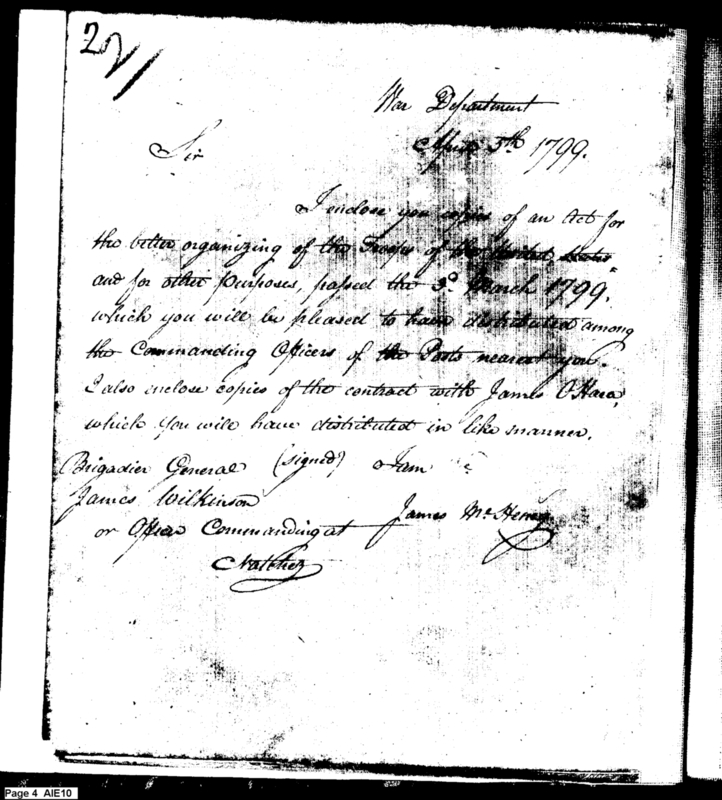 221
War Department
April 5th 1799.
Sir
I enclose you copies of an Act for
the better organizing of the Troops of the United States
and for other Purposes, passed the 3d. March 1799.
which you will be pleased to have distributed among
the Commanding Officers of the Posts nearest you.
I also enclose copies of the contract with James O'Hara,
which you will have distributed in like manner.
Brigadier General (signed) I am &c
James Wilkinson
James McHenry
or Officer Commanding at
Natchez
Page 4 AIE10